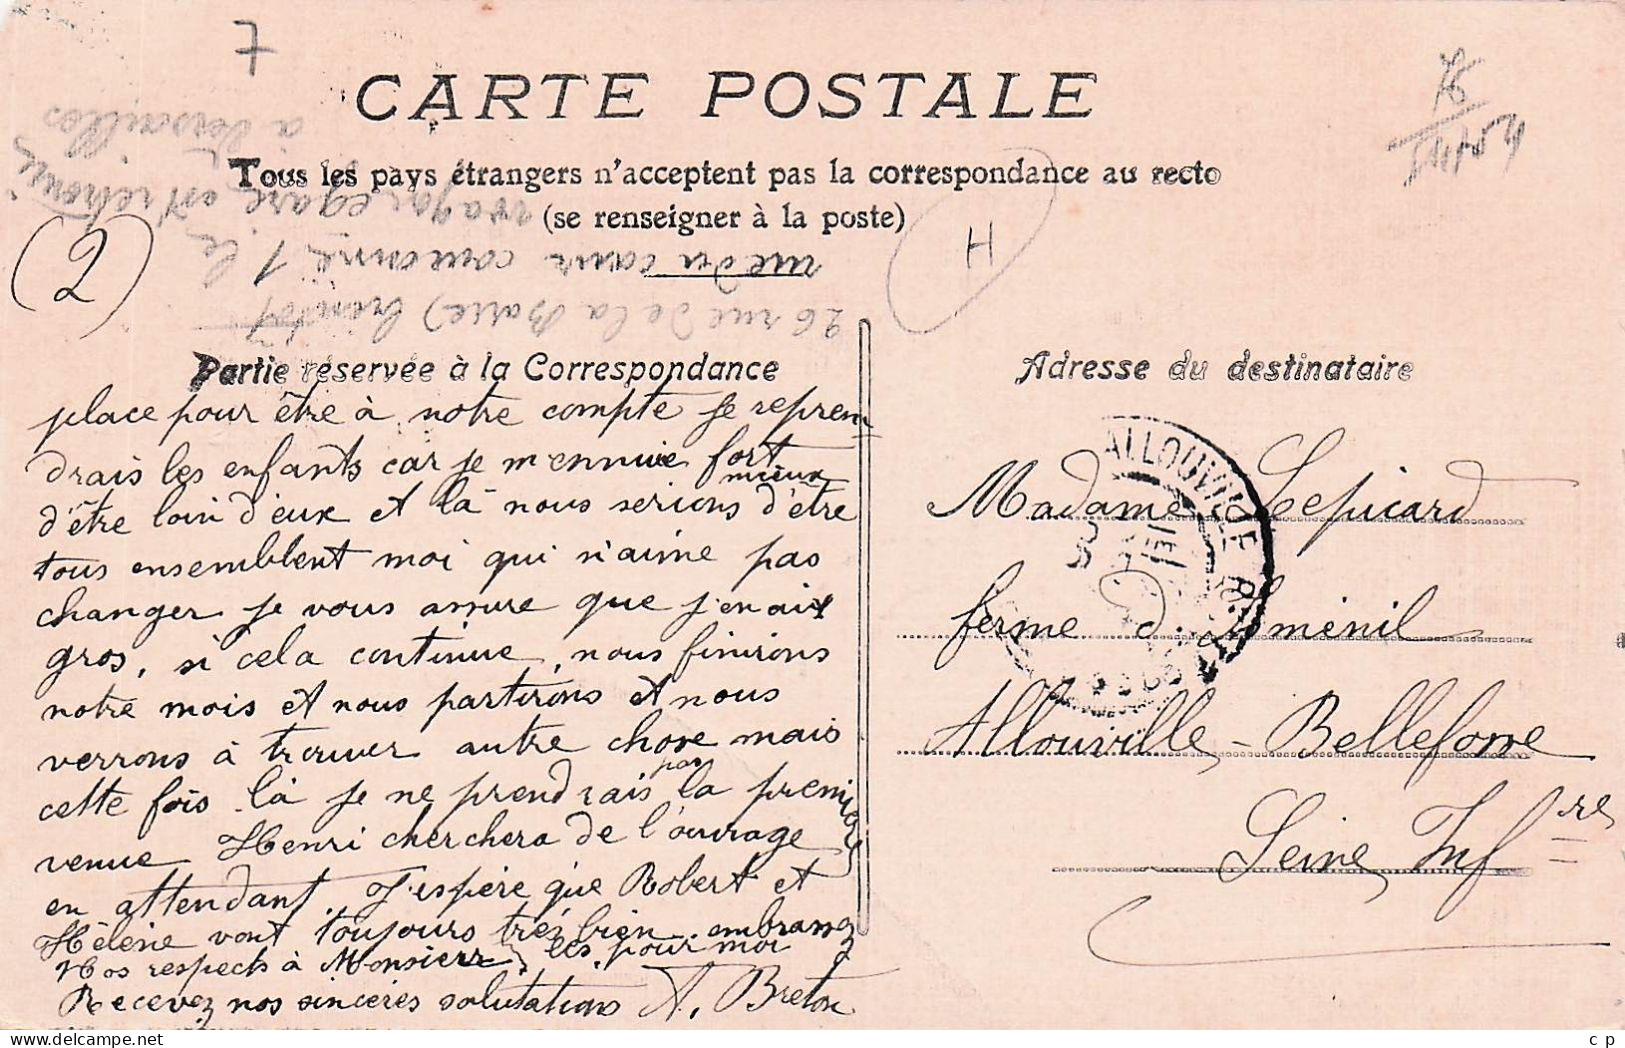 CARTE POSTALE
Tous les pays étrangers n'acceptent pas la correspondance au recto
(se renseigner à la poste)
(2)
H
26 rue de la Barre)
rue du cœur couronné 1. la
est retrouvé
à Versailles
Partie réservée à la Correspondance
place pour être à notre compte je repren
drais les enfants car je m'ennuie fort
d'être loin d'eux et là nous serions mieux d'être
tous ensemblent moi qui n'aime pas
changer je vous assure que j'en ai
gros, si cela continue, nous finirons
notre mois et nous partirons et nous
verrons à trouver autre chose mais
cette fois là je ne prendrais pas la première
venue Henri cherchera de l'ouvrage
en attendant. J'espère que Robert et
Hélène vont toujours très bien embrassez
les pour moi
Nos respects à Monsieur
Recevez nos sincères salutations A. Breton
Adresse du destinataire
Madame Lepicard
ferme d
Allouville-Bellefosse
Seine Inf re
ALLOUVILLE
c p